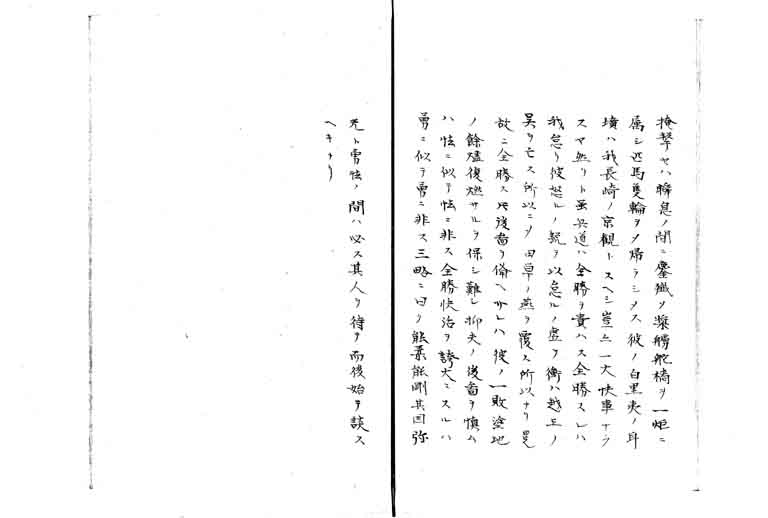 掩撃セハ瞬息ノ間ニ鏖殲シ漿艣舵檣ヲ一炬ニ
属シ匹馬隻輪ヲシテ帰ラシメス彼ノ白里夷ノ耳
墳ハ我長崎ノ京観トスヘシ豈亦一大快事ナラ
スヤ然リト虽兵道ハ全勝ヲ貴ハス全勝スレハ
我怠リ彼怒ル怒ヲ以怠ルノ虚ヲ衝ハ越王ノ
呉ヲ亡ス所以ニシテ田単ノ燕ヲ覆ス所以ナリ是
故ニ全勝ス共後畜ヲ備ヘサレハ彼ノ一敗塗地
ノ餘燼復燃サルヲ保シ難シ抑夫ノ後畜ヲ慎ム
ハ怯ニ似テ怯ニ非ス全勝快治ヲ誇大ニスルハ
勇ニ似テ勇ニ非ス三略ニ曰ク能柔能剛其国弥
光ト勇怯ノ間ハ必ス其人ヲ待テ而後始テ談ス
ヘキナリ